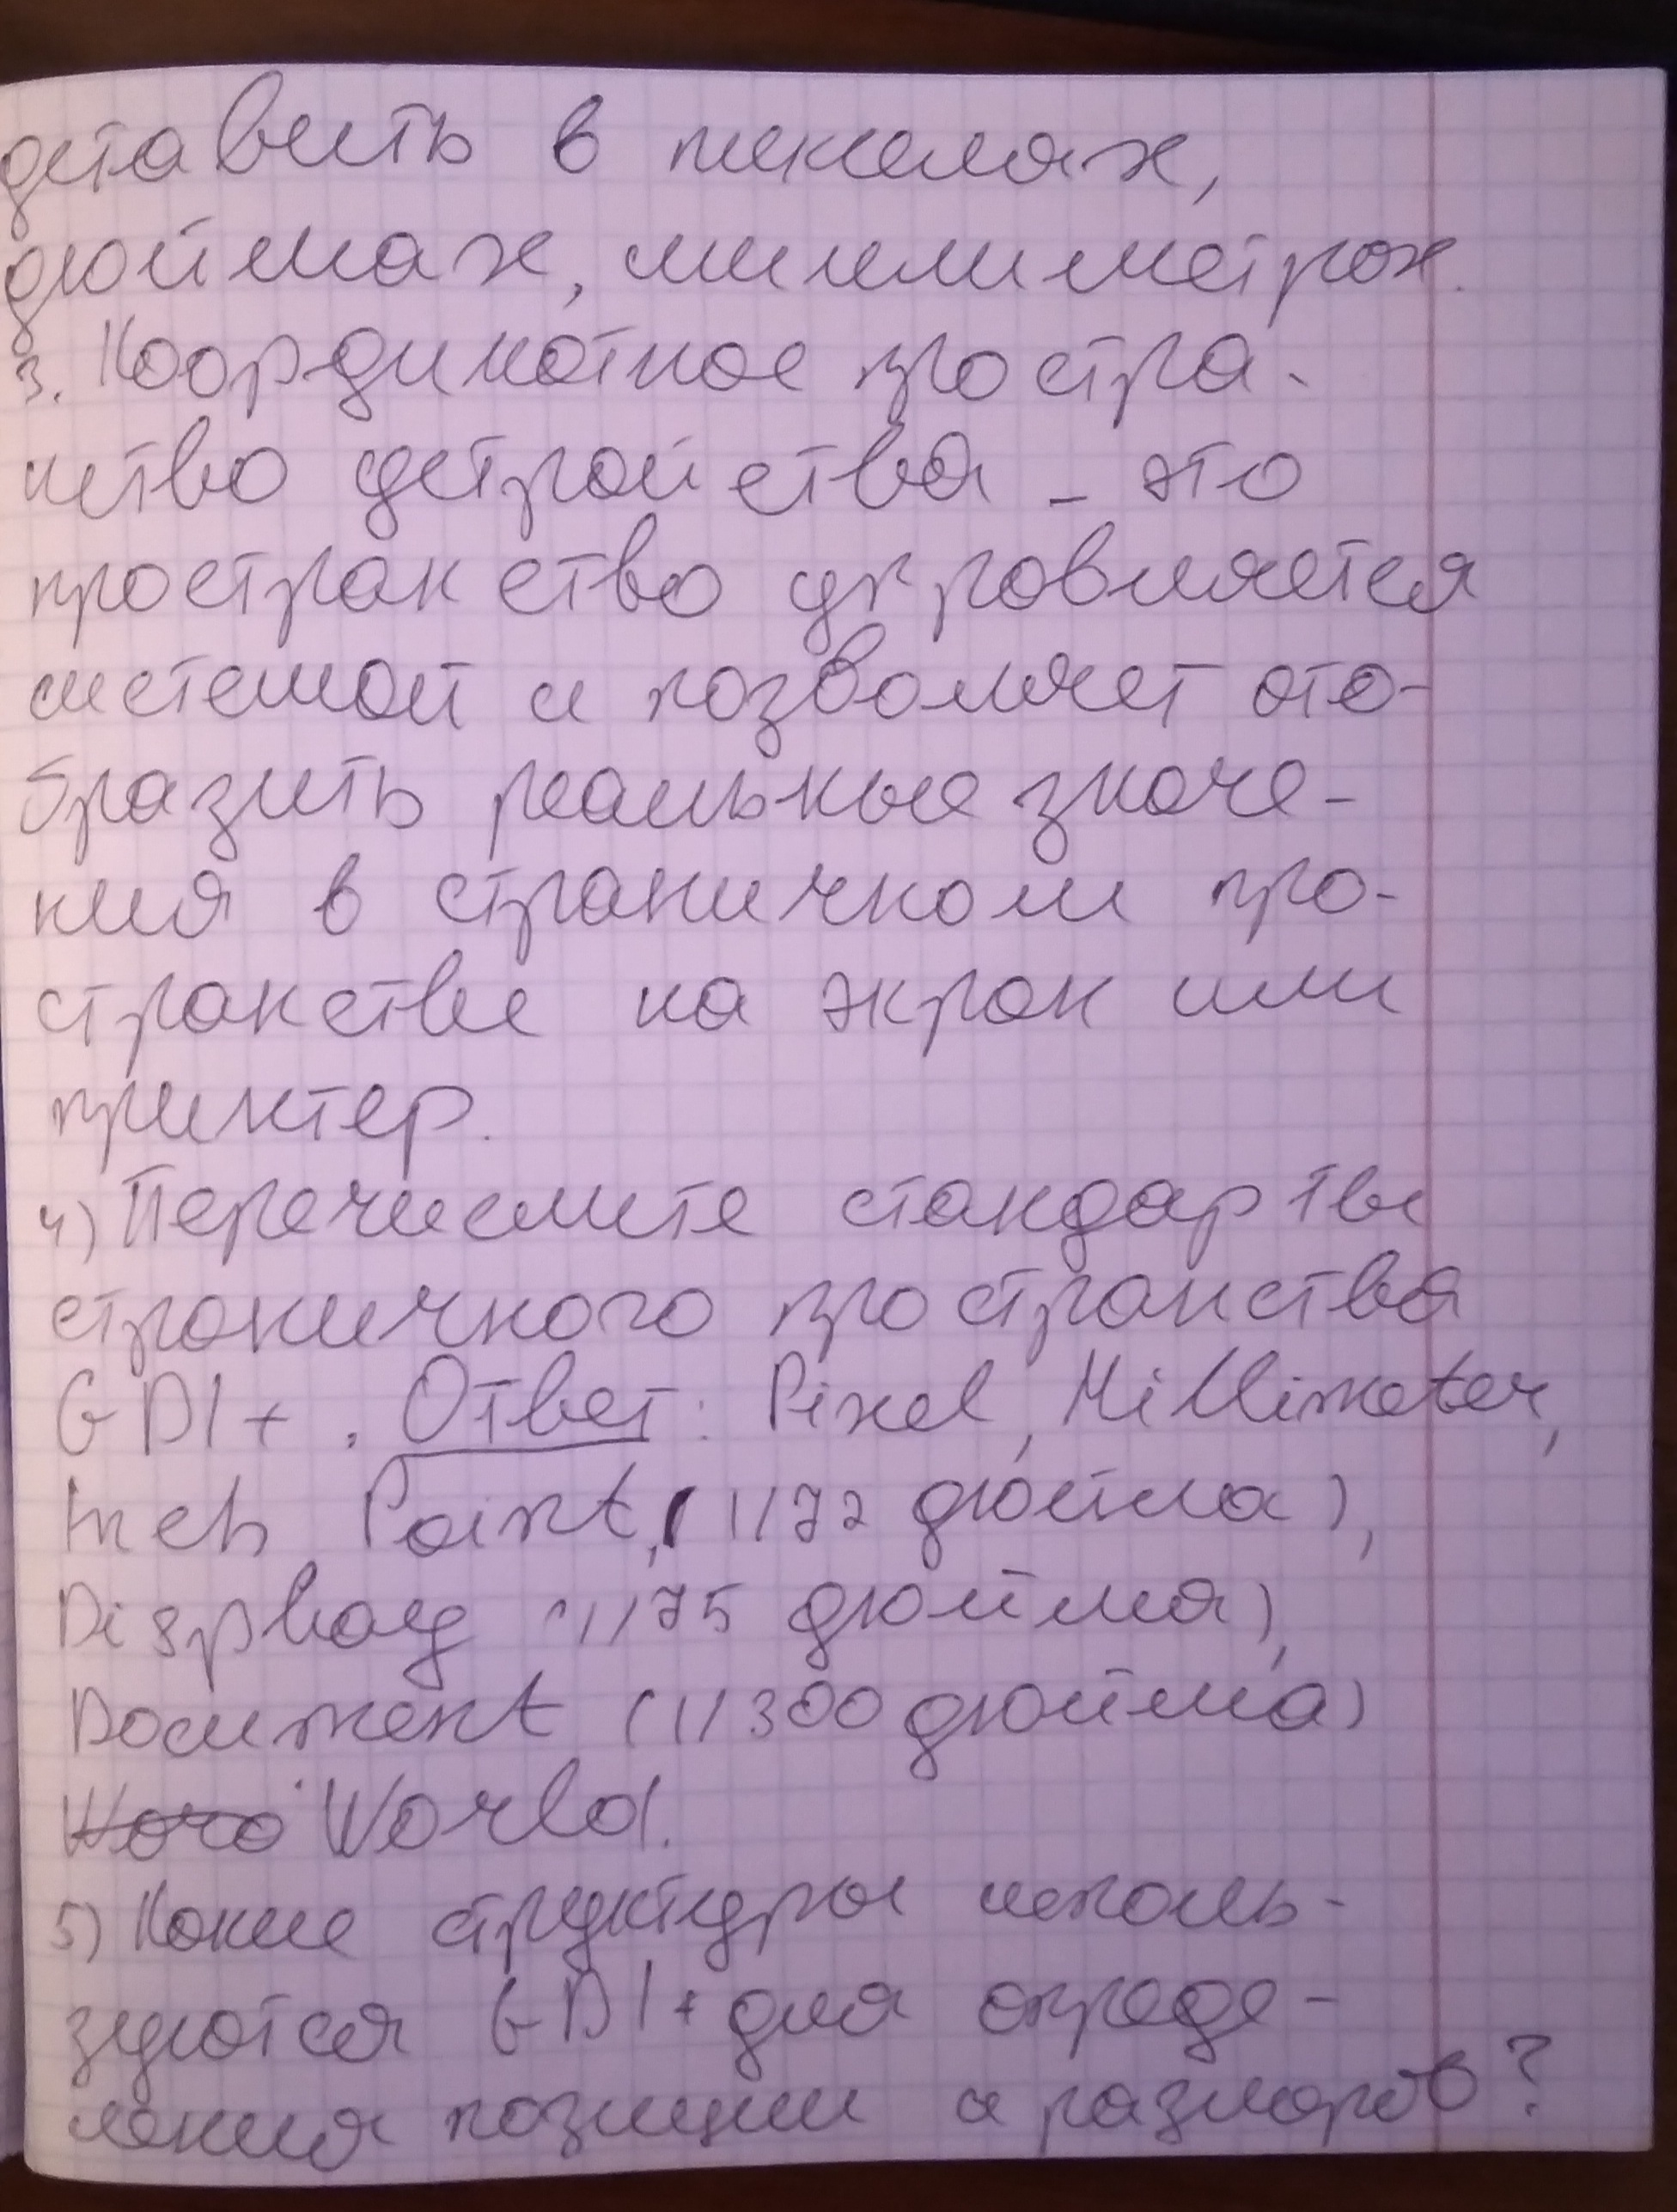 дставить в пикселях,
дюймах, миллиметрах.
3. Координатное простра-
нство устройства - это
пространство управляется
системой и позволяет ото-
бразить реальные значе-
ния в страничном про-
странстве на экран или
принтер.
4) Перечислите стандарты
страничного пространства
GDI+. Ответ: Pixel, Millimeter,
Inch Point, (1/72 дюйма),
Display (1/75 дюйма),
Document (1/300 дюйма)
World.
5) Какие структуры исполь-
зуются GDI+ для опреде-
ления позиции и размеров?